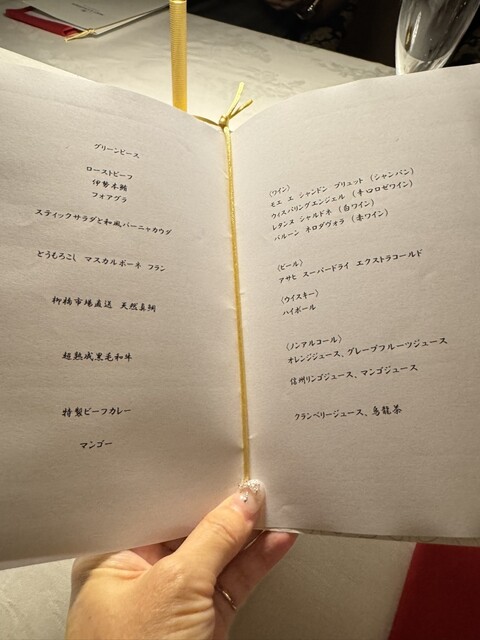 グリーンピース
ローストビーフ
伊勢本鮪
フォアグラ
スティックサラダと和風バーニャカウダ
とうもろこし マスカルポーネ フラン
柳橋市場直送 天然真鯛
超熟成黒毛和牛
特製ビーフカレー
マンゴー
〈ワイン〉
モエ エ シャンドン ブリュット (シャンパン)
ウィスパリングエンジェル (辛口ロゼワイン)
レタンヌ シャルドネ (白ワイン)
バルーン ネロダヴォラ (赤ワイン)
〈ビール〉
アサヒ スーパードライ エクストラコールド
〈ウイスキー〉
ハイボール
〈ノンアルコール〉
オレンジジュース、グレープフルーツジュース
信州リンゴジュース、マンゴジュース
クランベリージュース、烏龍茶